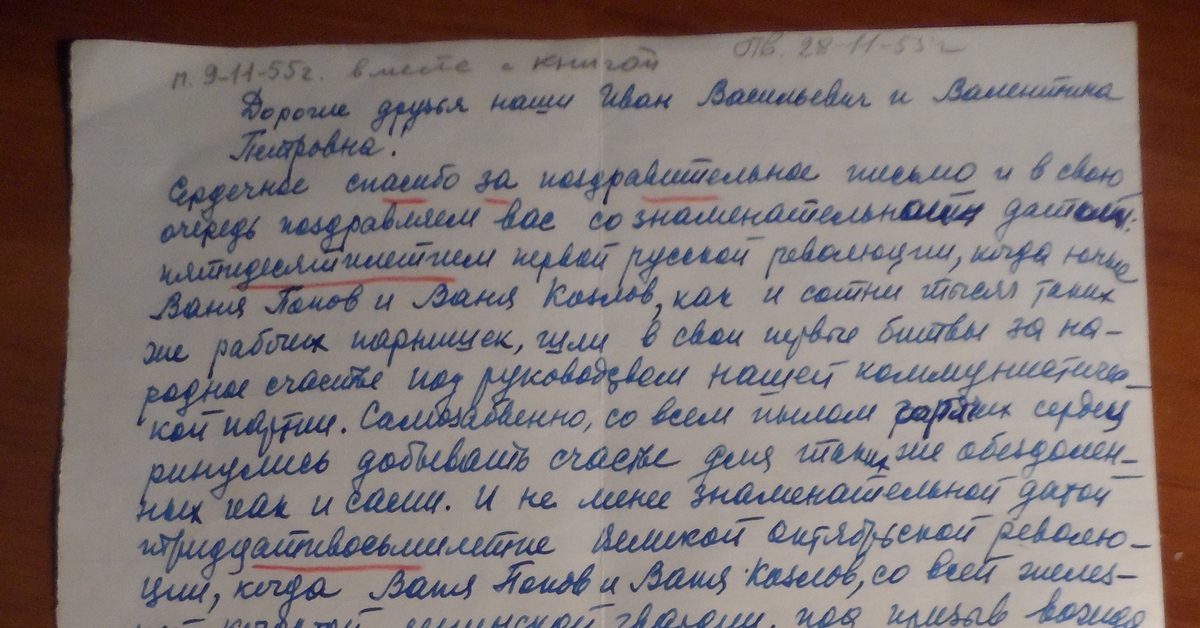 п. 9-11-55г. вместе с книгой
Отв. 28-11-55г
Дорогие друзья наши Иван Васильевич и Валентина
Петровна.
Сердечное спасибо за поздравительное письмо и в свою
очередь поздравляем вас со знаменательной датой:
пятидесятилетием первой русской революции, когда юные
Ваня Попов и Ваня Козлов, как и сотни тысяч таких
же рабочих парнишек, шли в свои первые битвы за на-
родное счастье под руководсвом нашей коммунистичес-
кой партии. Самозабвенно, со всем пылом горячих сердец
ринулись добывать счастье для таких же обездолен-
ных как и сами. И не менее знаменательной датой
тридцативосьмилетие Великой октябрьской револю-
ции, когда Ваня Попов и Ваня Козлов, со всей желез-
ленинской гвардии, под призыв вождя